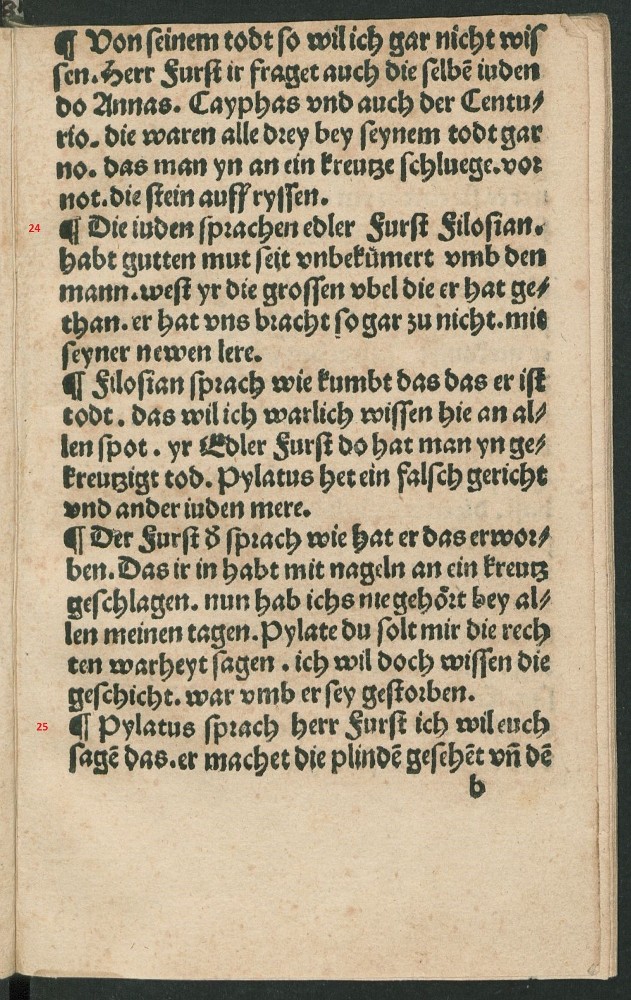 ¶ Von seinem todt so wil ich gar nicht wis
sen. Herr Furst ir fraget auch die selbē iuden
do Annas. Cayphas vnd auch der Centu⸗
rio. die waren alle drey bey seynem todt gar
no. das man yn an ein kreutze schluege. vor
not. die stein auff ryssen.
24 ¶ Die iuden sprachen edler Furst Filosian.
habt gutten mut seit vnbekümert vmb den
mann. west yr die grossen vbel die er hat ge⸗
than. er hat vns bracht so gar zu nicht. mit
seyner newen lere.
¶ Filosian sprach wie kumbt das das er ist
todt. das wil ich warlich wissen hie an al⸗
len spot. yr Edler Furst do hat man yn ge⸗
kreutzigt tod. Pylatus het ein falsch gericht
vnd ander iuden mere.
¶ Der Furst d̕ sprach wie hat er das erwor⸗
ben. Das ir in habt mit nageln an ein kreutz
geschlagen. nun hab ichs nie gehört bey al⸗
len meinen tagen. Pylate du solt mir die rech
ten warheyt sagen. ich wil doch wissen die
geschicht. war vmb er sey gestorben.
25 ¶ Pylatus sprach herr Furst ich wil euch
sagē das. er machet die plindē gesehēt vn̄ dē
b